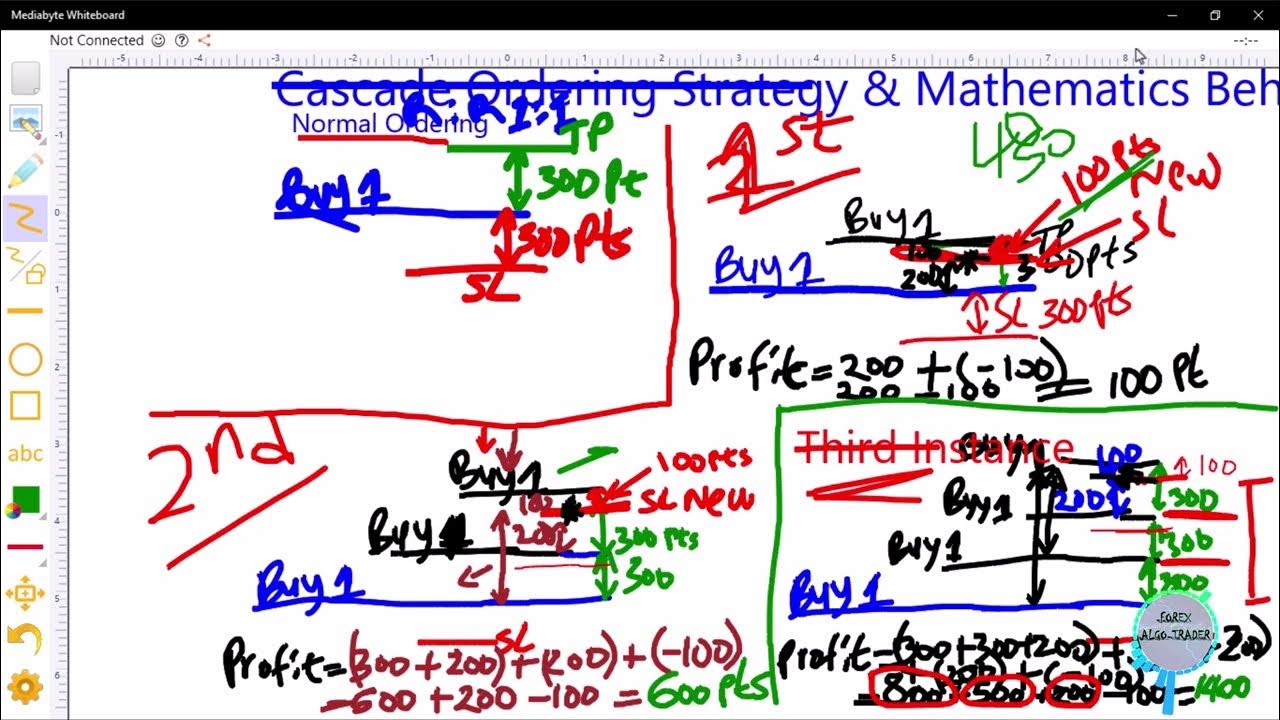 Mediabyte Whiteboard
Not Connected
--:--
-5 -4 -3 -2 -1 0 1 2 3 4 5 6 7 8 9
Cascade Ordering Strategy & Mathematics Beh
R:R 1:1
Normal Ordering
TP
300 Pt
Buy 1
300 pts
SL
1 st
450
100 pts
New
SL
Buy 1
TP
100
200
300 pts
Buy 1
SL 300 pts
Profit = 200 + (-100)
200 - 100 = 100 Pt
2nd
Buy 1
100 pts
SL New
100
200
Buy 1
300 pts
300
Buy 1
SL
Profit = (300 + 200) + (200) + (-100)
600 + 200 - 100 = 600 pts
Third Instance
Buy
100
100
Buy 1
200
300
Buy 1
300
300
Buy 1
Profit = (300 + 300 + 200) +
800 500 200 - 100 = 1400
FOREX
ALGO-TRADER
abc
-1 0 1 2 3 4 5 6